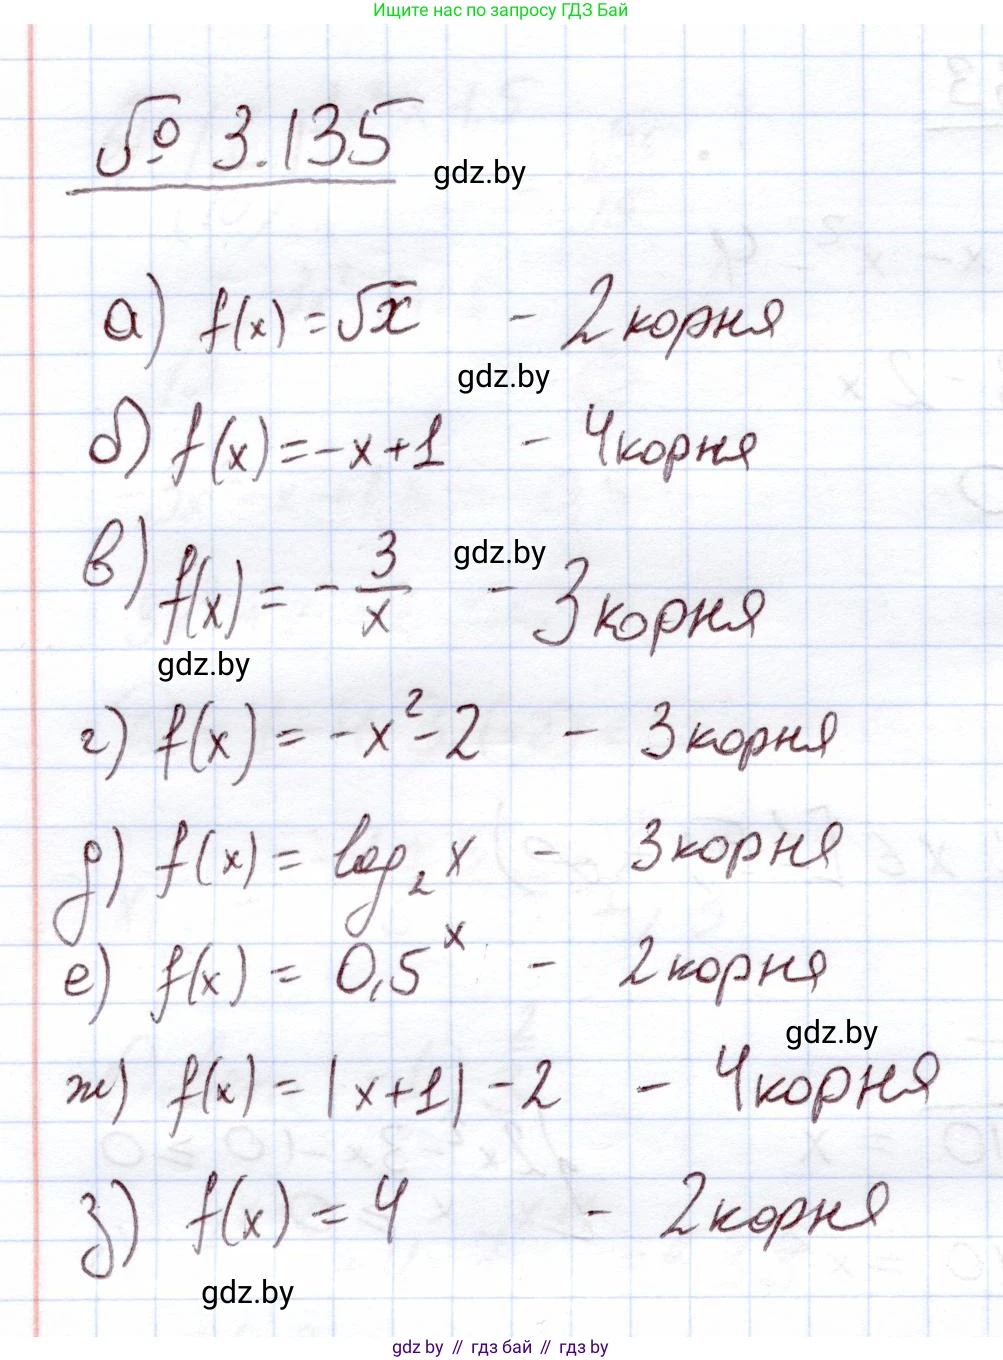 Ищите нас по запросу ГДЗ Бай
№ 3.135
gdz.by
а) f(x) = √x - 2 корня
gdz.by
б) f(x) = -x+1 - 4 корня
в) f(x) = -3/x - 3 корня
gdz.by
gdz.by
г) f(x) = -x²-2 - 3 корня
д) f(x) = log₂x - 3 корня
е) f(x) = 0,5ˣ - 2 корня
gdz.by
ж) f(x) = |x+1| -2 - 4 корня
з) f(x) = 4 - 2 корня
gdz.by
gdz.by // гдз бай // гдз by